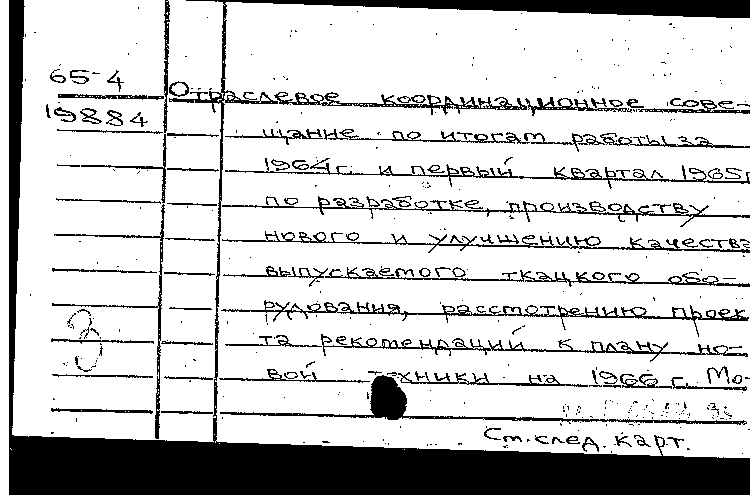 65-4
19884
Отраслевое координационное сове-
щание по итогам работы за
1964г. и первый квартал 1965г
по разработке, производству
нового и улучшению качества
выпускаемого ткацкого обо-
рудования, рассмотрению проек
та рекомендаций к плану но-
вой техники на 1966 г. Мо-
З
См. след. карт.